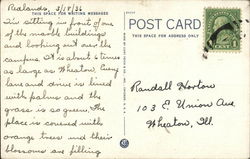 Redlands, 3/18/36
THIS SPACE FOR WRITING MESSAGES
POST CARD
THIS SPACE FOR ADDRESS ONLY
I'm sitting in front of one
of the marble buildings
and looking out over the
campus. It is about 6 times
as large as Wheaton. Every
lane and drive is lined
with palms and the
grass is so green. The
place is covered with
orange trees and their
blossoms are filling
1 CENT 1
Randall Norton
103 E. Union Ave
Wheaton, Ill.